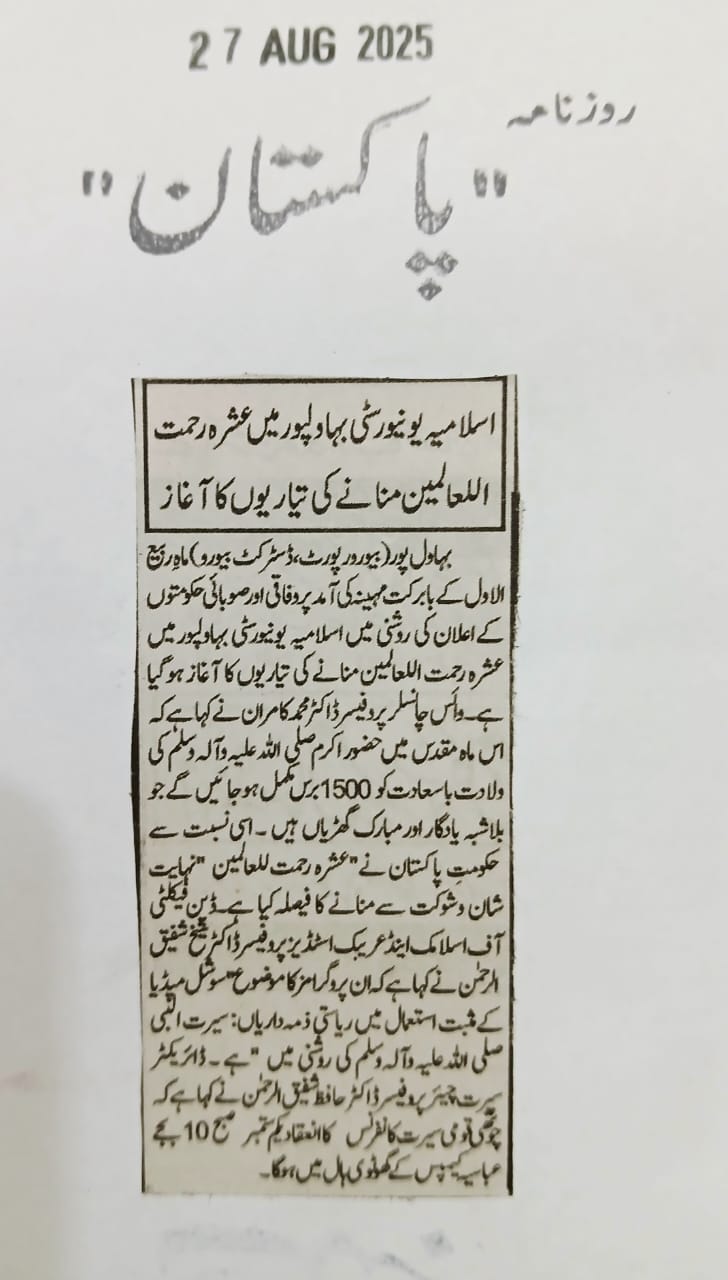 27 AUG 2025
روزنامہ
"پاکستان"
اسلامیہ یونیورسٹی بہاولپور میں عشرہ رحمت
اللعالمین منانے کی تیاریوں کا آغاز
بہاول پور (بیورورپورٹ، ڈسٹرکٹ بیورو) ماہ ربیع
الاول کے بابرکت مہینہ کی آمد پر وفاقی اور صوبائی حکومتوں
کے اعلان کی روشنی میں اسلامیہ یونیورسٹی بہاولپور میں
عشرہ رحمت اللعالمین منانے کی تیاریوں کا آغاز ہوگیا
ہے۔ وائس چانسلر پروفیسر ڈاکٹر محمد کامران نے کہا ہے کہ
اس ماہ مقدس میں حضور اکرم صلی اللہ علیہ وآلہ وسلم کی
ولادت باسعادت کو 1500 برس مکمل ہوجائیں گے جو
بلاشبہ یادگار اور مبارک گھڑیاں ہیں۔ اسی نسبت سے
حکومتِ پاکستان نے "عشرہ رحمت للعالمین" نہایت
شان و شوکت سے منانے کا فیصلہ کیا ہے۔ ڈین فیکلٹی
آف اسلامک اینڈ عریبک اسٹڈیز پروفیسر ڈاکٹر شیخ شفیق
الرحمٰن نے کہا ہے کہ ان پروگرامز کا موضوع "سوشل میڈیا
کے مثبت استعمال میں ریاستی ذمہ داریاں: سیرت النبی
صلی اللہ علیہ وآلہ وسلم کی روشنی میں" ہے۔ ڈائریکٹر
سیرت چیئر پروفیسر ڈاکٹر حافظ شفیق الرحمٰن نے کہا ہے کہ
چوتھی قومی سیرت کانفرنس کا انعقاد یکم ستمبر صبح 10 بجے
عباسیہ کیمپس کے گھوٹوی ہال میں ہوگا۔